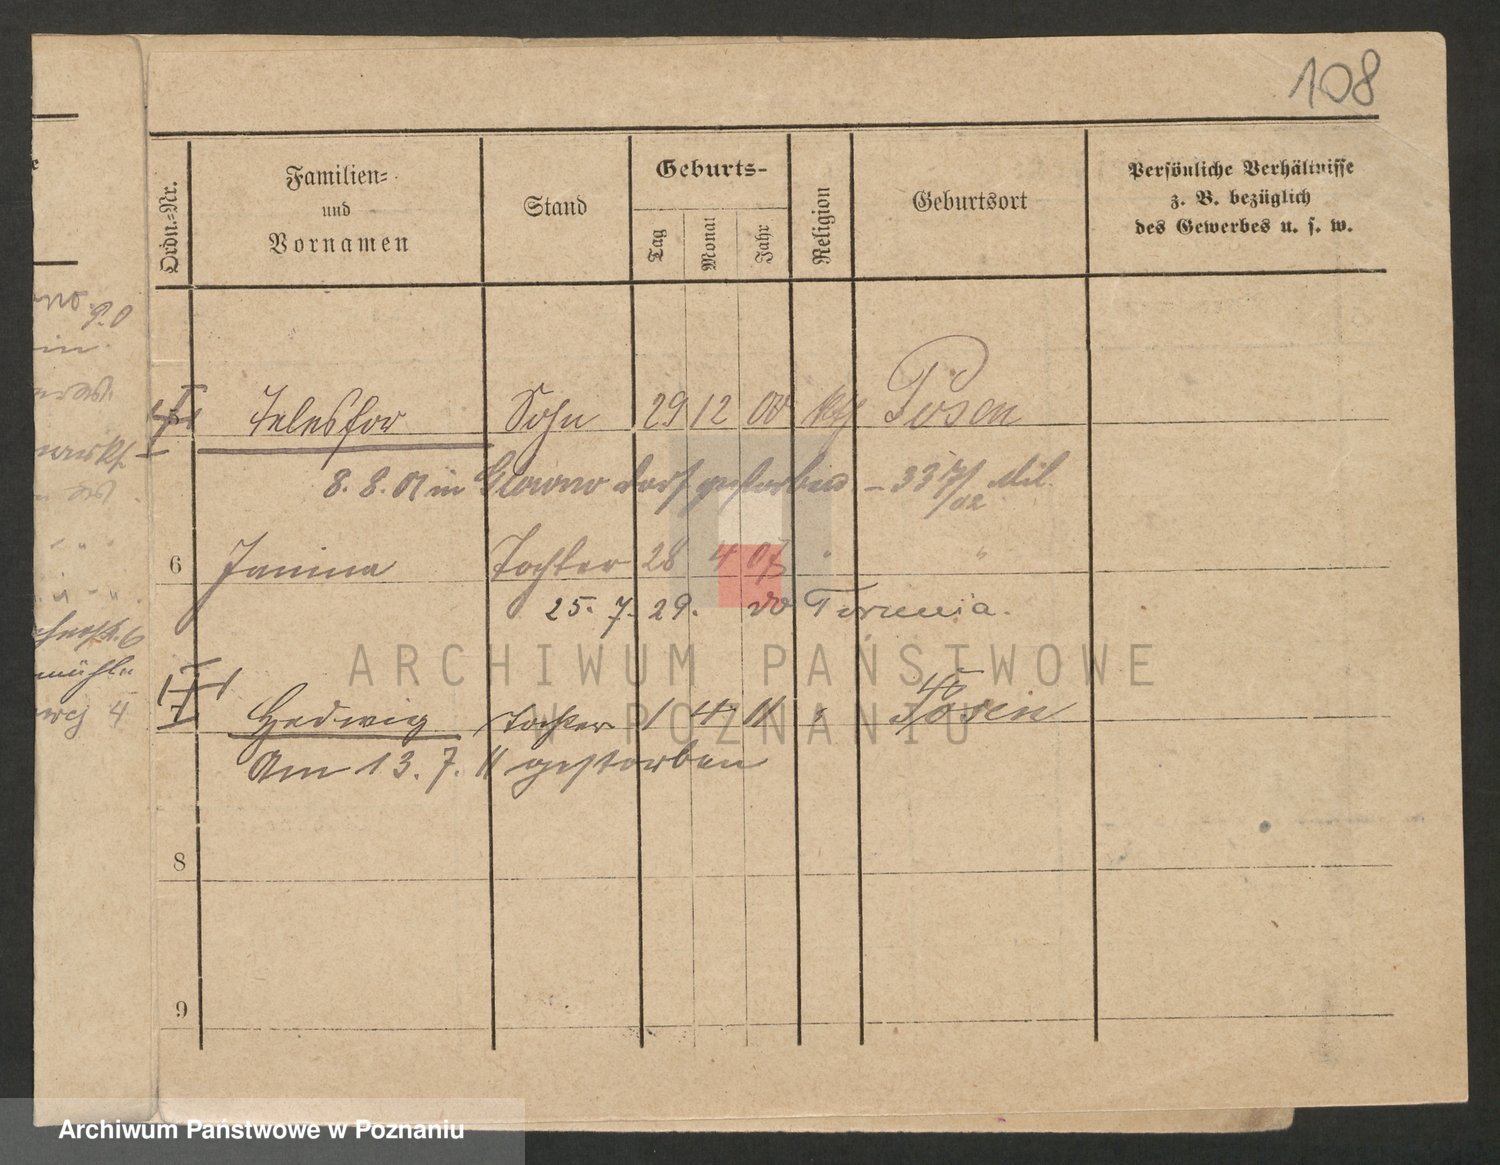 108
Ordn.-Nr.
Familien-
und
Vornamen
Stand
Geburts-
Tag
Monat
Jahr
Religion
Geburtsort
Persönliche Verhältnisse
z. B. bezüglich
des Gewerbes u. s. w.
Telesfor Sohn 29 12 00 kth Posen
8. 8. 01 in dorf gestorben - 337/02 Mil.
6 Janina Tochter 28 4 07 " "
25. 7. 29. do Torunia.
7 Hedwig Tochter 1 4 11 " Posen
Am 13. 7. 11 gestorben
8
9
mühle
weg 4
ARCHIWUM PAŃSTWOWE
W POZNANIU
Archiwum Państwowe w Poznaniu